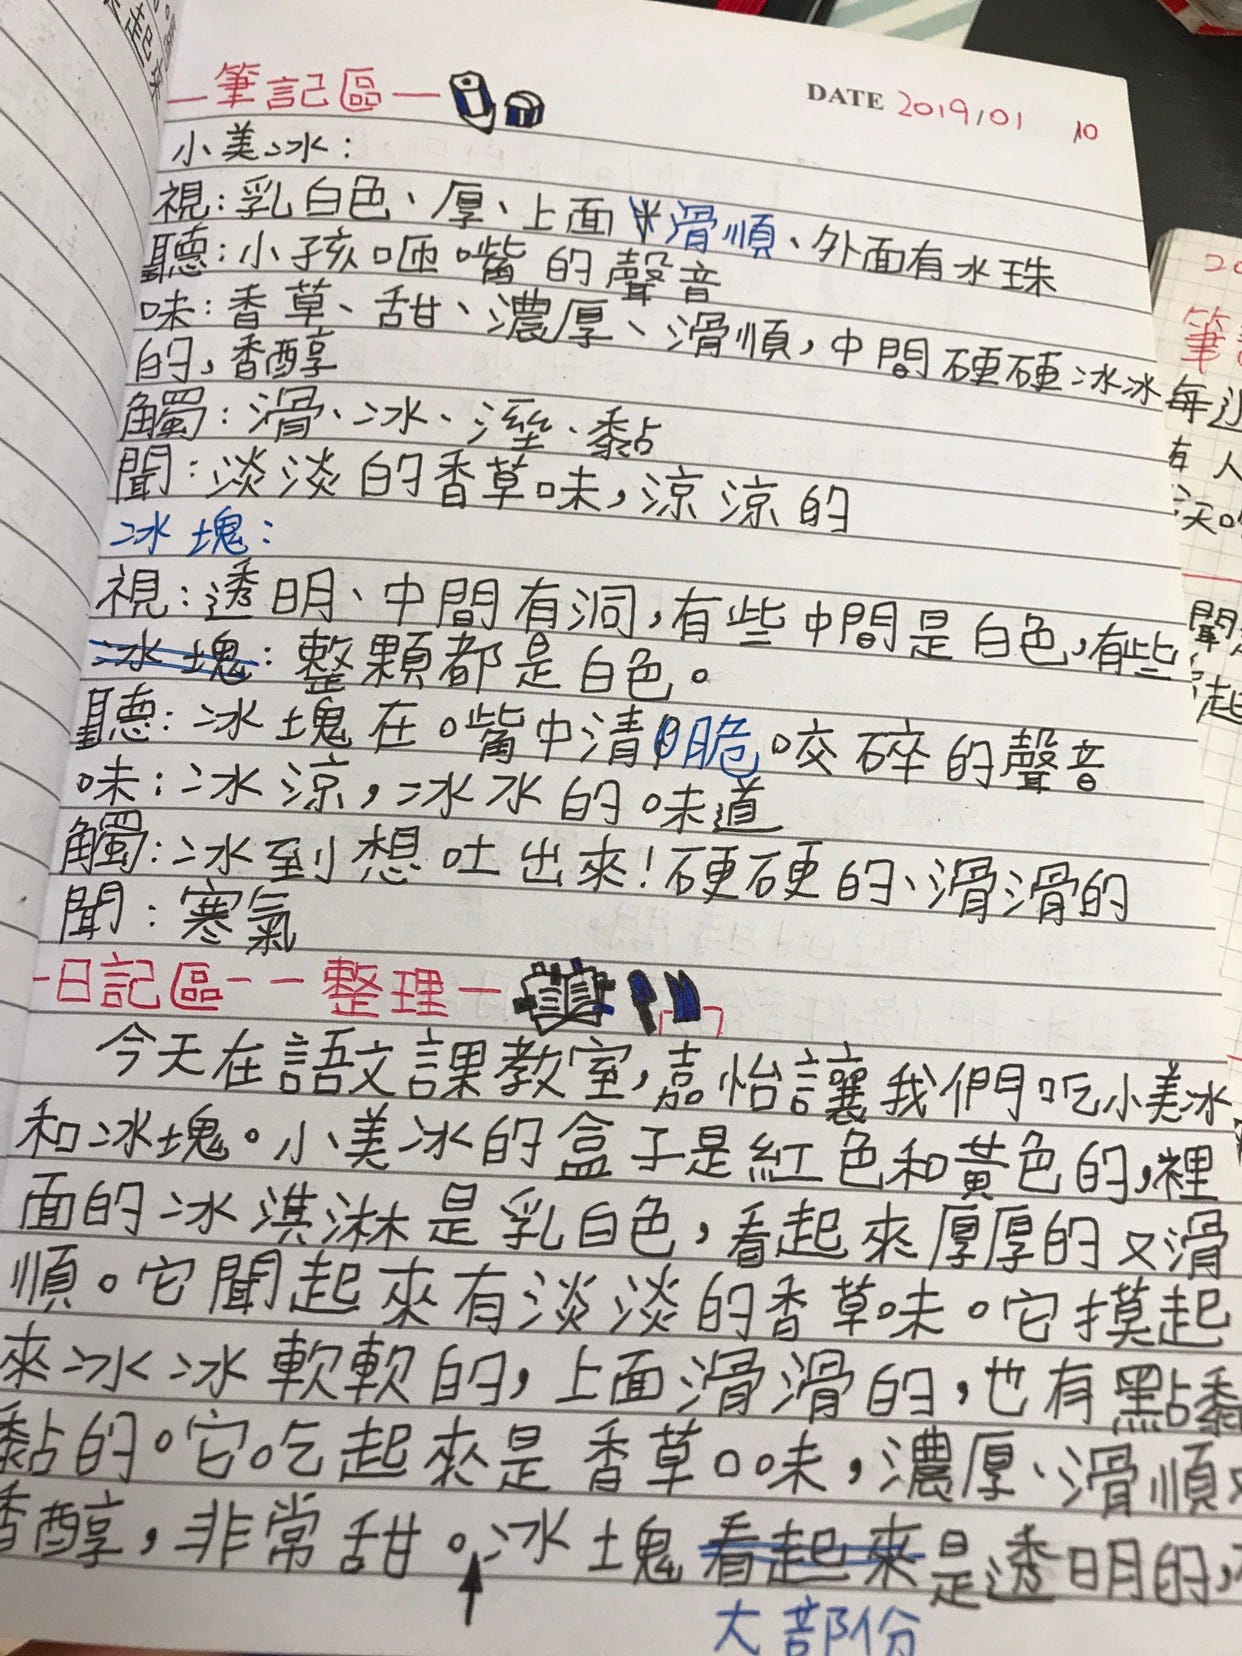 DATE 2019/01 10
—筆記區—
小美冰：
視：乳白色、厚、上面滑順、外面有水珠
聽：小孩咂嘴的聲音
味：香草、甜、濃厚、滑順，中間硬硬冰冰
的，香醇
觸：滑、冰、溼、黏
聞：淡淡的香草味，涼涼的
冰塊：
視：透明、中間有洞，有些中間是白色，有些
冰塊：整顆都是白色。
聽：冰塊在嘴中清脆咬碎的聲音
味：冰涼，冰水的味道
觸：冰到想吐出來！硬硬的、滑滑的
聞：寒氣
-日記區--整理-
今天在語文課教室，嘉怡讓我們吃小美冰
和冰塊。小美冰的盒子是紅色和黃色的，裡
面的冰淇淋是乳白色，看起來厚厚的又滑
順。它聞起來有淡淡的香草味。它摸起
來冰冰軟軟的，上面滑滑的，也有點黏
黏的。它吃起來是香草口味，濃厚、滑順又
香醇，非常甜。冰塊看起來是透明的，
大部份
20
筆記
每
有人
天
聞
起